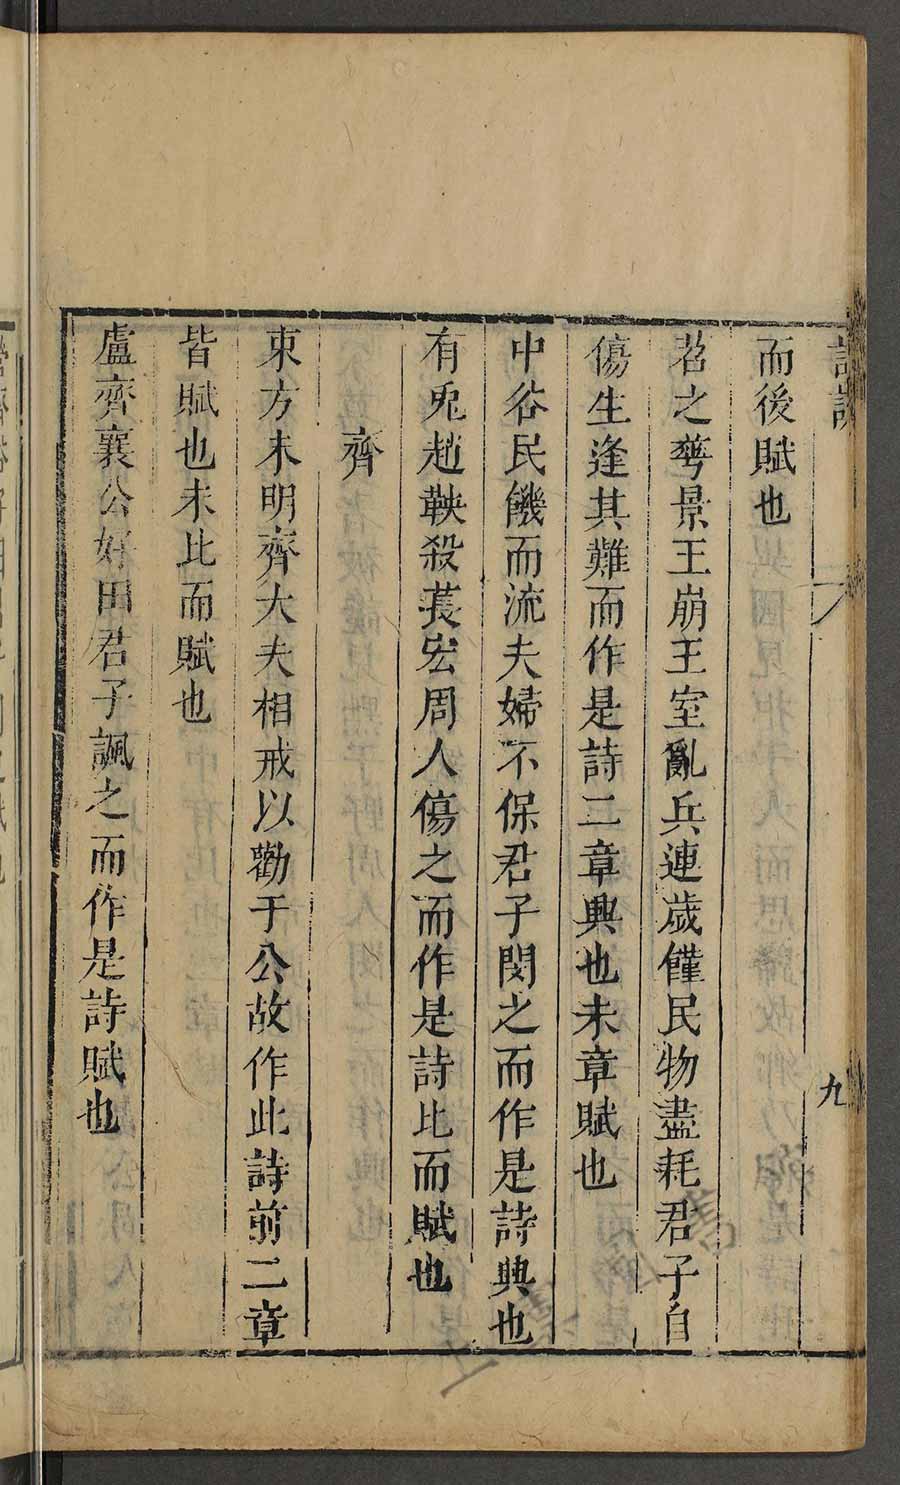 詩說
九
而後賦也
苕之蕚景王崩王室亂兵連歲僅民物盡耗君子自
傷生逢其難而作是詩二章興也未章賦也
中谷民饑而流夫婦不保君子閔之而作是詩興也
有兎趙鞅殺萇宏周人傷之而作是詩比而賦也
齊
東方未明齊大夫相戒以勸于公故作此詩前二章
皆賦也未比而賦也
盧齊襄公好田君子諷之而作是詩賦也